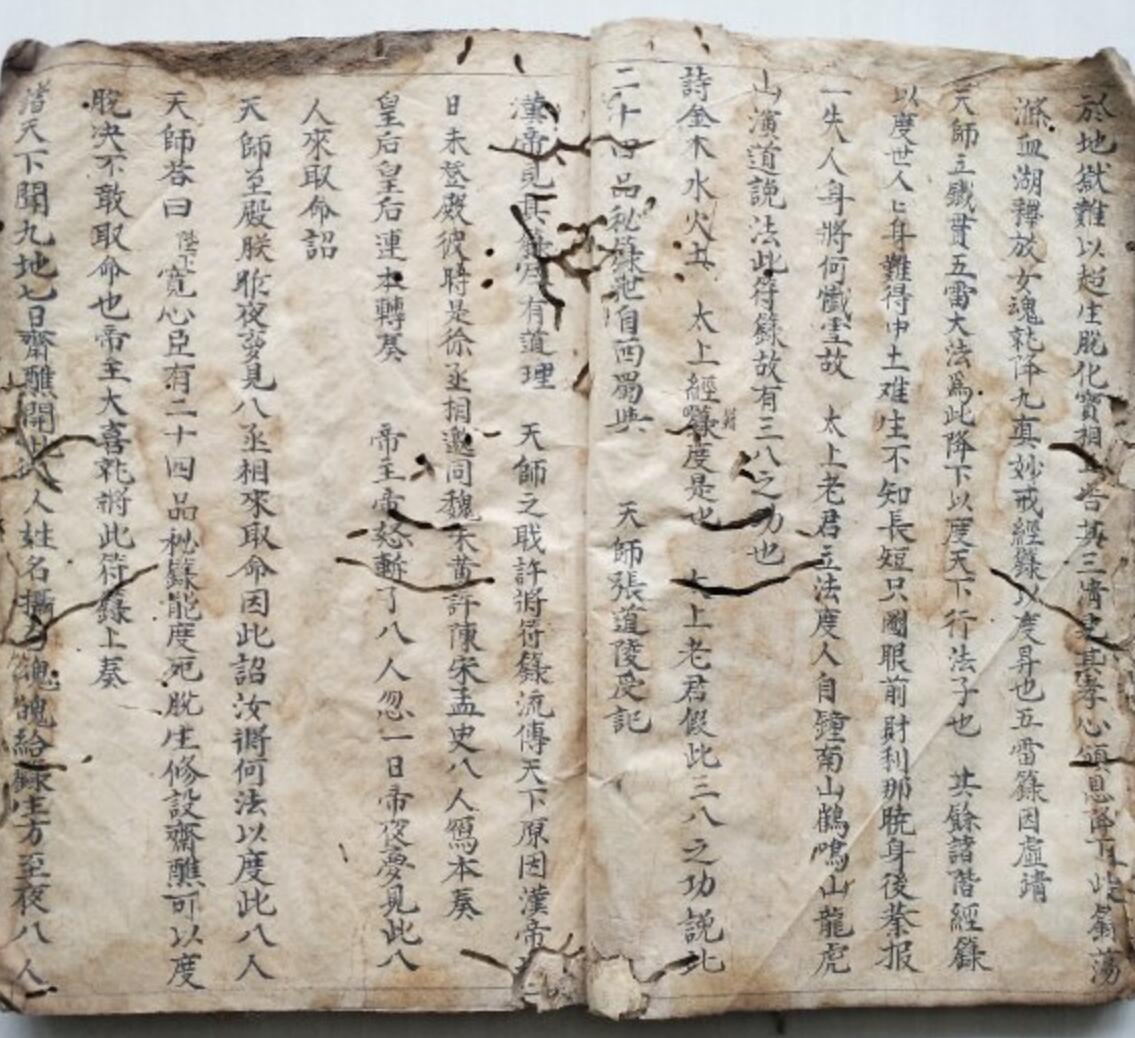 於地獄難以超生脫化寳相 告 三清 其孝心 恩降下此籙蕩
滌血湖釋放女魂乾降九真妙戒經籙以度昇也五雷籙因虛靖
天師立鐵 五雷大法為此降下以度天下行法子也 其餘諸階經籙
以度世人匕身難得中土难生不知長短只圖眼前財利那曉身後 报
一失人身將何懺 故 太上老君立法度人自鐘南山鶴鳴山龍虎
山演道説法此符籙故有三八之功也
詩金木水火土 太上經籙 度是也 太上老君假此三八之功説此
二十四品秘籙 自西蜀 天師張道陵受記
漢帝見其籙 有道理 天師之戝許將符籙流傳天下原因漢帝
日未登殿彼時是徐丞相邀同魏朱黄許陳宋孟史八人寫本奏
皇后皇后連本轉奏 帝主帝怒斬了八人忽一日帝夜夢見此八
人來取命詔
天師至殿朕昨夜夢見八丞相來取命因此詔汝將何法以度此八人
天師答曰陛下寛心臣有二十四品秘籙能度死脱生修設齋醮可以度
脱决不敢取命也帝主大喜乾將此符籙上奏
諸天下開九地七日齋醮開 人姓名攝 魂魄給籙生方至夜八人